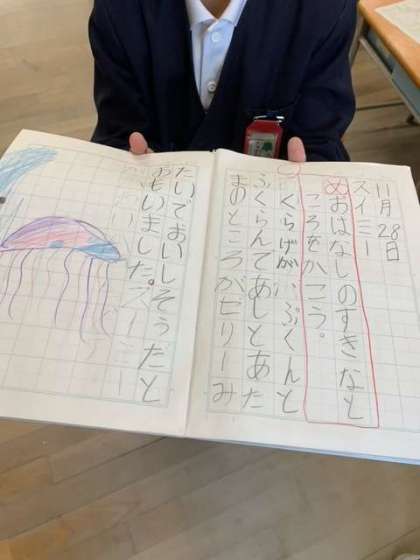 11月28日
スイミー
めおはなしのすきなと
ころをかこう。
くらげが、ぷくんと
ふくらんであしとあた
まのところがゼリーみ
たいでおいしそうだと
おもいました。スイミー